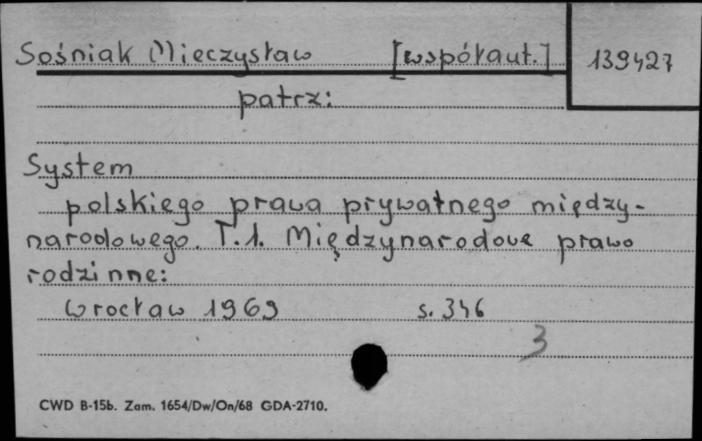 Sośniak Mieczysław [współaut.] 139427
patrz:
System
polskiego prawa prywatnego między-
narodowego. T.1. Międzynarodowe prawo
rodzinne:
Wrocław 1969 s. 346
3
CWD B-15b. Zam. 1654/Dw/On/68 GDA-2710.